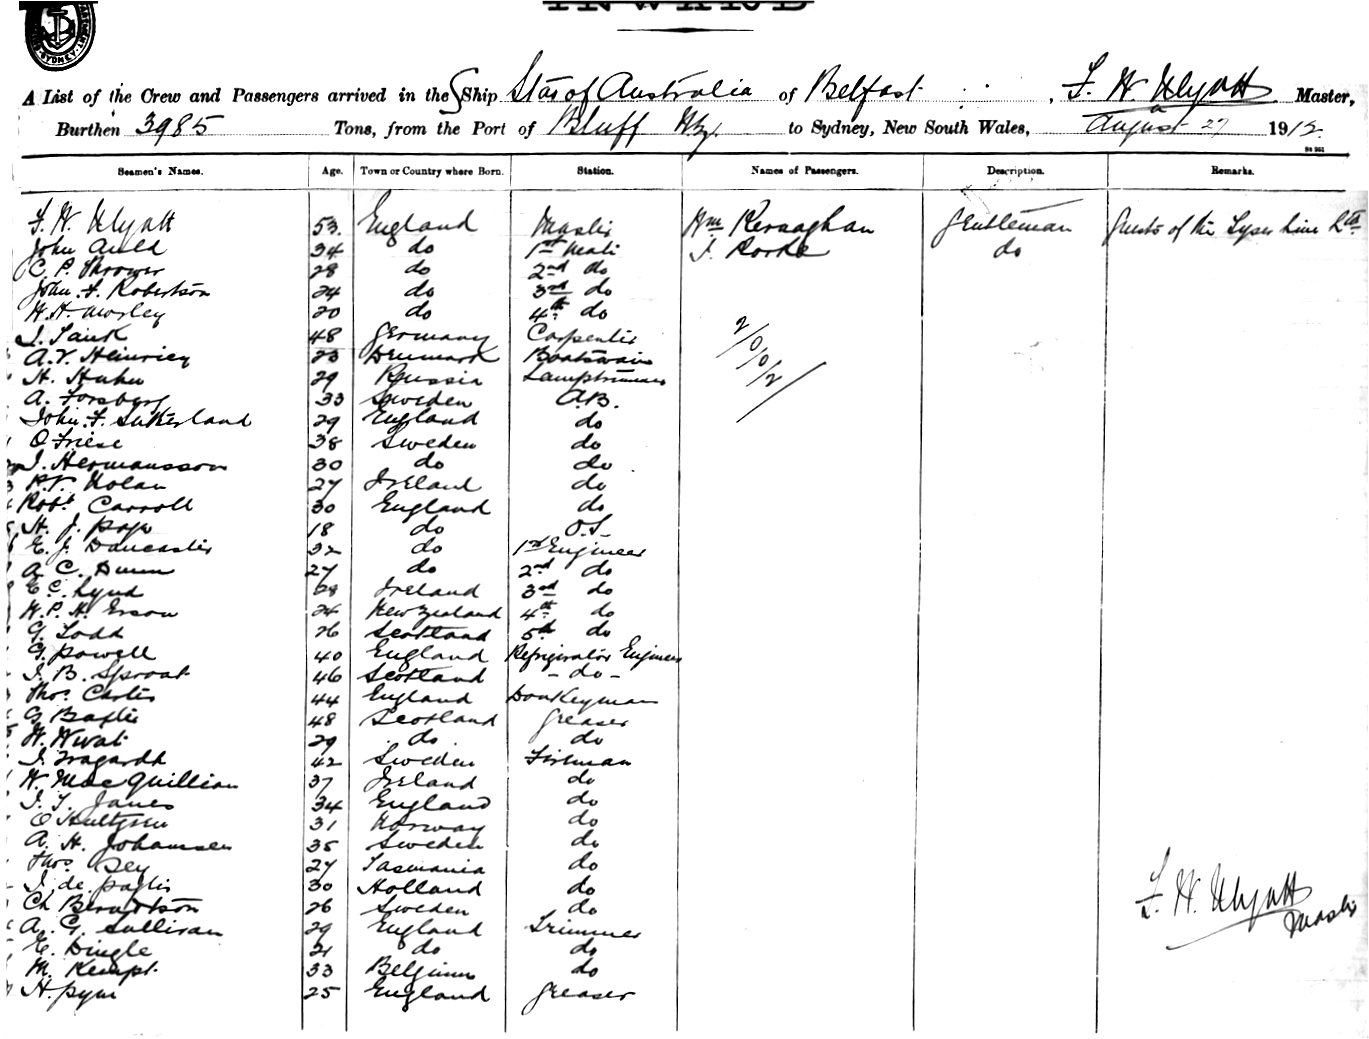 INWARD
A List of the Crew and Passengers arrived in the Ship Star of Australia of Belfast, F. W. Wyatt Master,
Burthen 3985 Tons, from the Port of Bluff N.Z. to Sydney, New South Wales, August 27 1912
Seamen's Names. Age. Town or Country where Born. Station. Names of Passengers. Description. Remarks.
F. W. Wyatt 53 England Master Wm Kersaghan Gentleman Guests of the Tyser Line Ltd
John Auld 34 do 1st Mate J. Rorke do
C. P. Thrower 28 do 2nd do
John F. Robertson 24 do 3rd do
W. H. Morley 20 do 4th do
J. Tank 48 Germany Carpenter
A. V. 23 Denmark Boatswain
H. Huhn 29 Russia Lamptrimmer
A. Forsberg 33 Sweden A.B.
John F. Sutherland 29 England do
O Friese 38 Sweden do
J. Hermansson 30 do do
P. Nolan 27 Ireland do
Robt Carroll 30 England do
H. J. Pope 18 do O.S.
E. J. Dancaster 32 do 1st Engineer
A. C. Dunn 27 do 2nd do
E. C. Lynd 28 Ireland 3rd do
W. P. H. Erson 24 New Zealand 4th do
G. Todd 26 Scotland 5th do
G. Powell 40 England Refrigirator Engineer
J. B. Sproat 46 Scotland - do -
Thos. Carter 44 England Donkeyman
G Baxter 48 Scotland Greaser
W. 29 do do
J. Tragardh 42 Sweden Fireman
W. MacQuillian 37 Ireland do
J. T. Janes 34 England do
O Hultgren 31 Norway do
A. H. Johansen 35 Sweden do
Thos Dey 27 Tasmania do
J. de 30 Holland do
Ch Berndtson 26 Sweden do
A. G. Sullivan 29 England Trimmer
E. Dingle 21 do do
M. Kempt 33 Belgium do
H. Pym 25 England Greaser
2/0/0/2/
F. W. Wyatt
Master